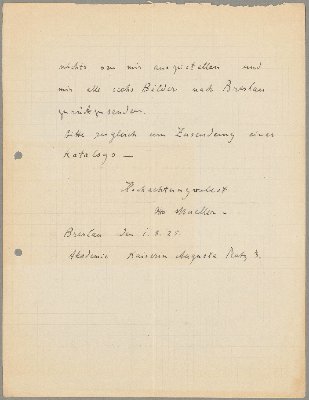 nichts von mir auszustellen und
mir alle sechs Bilder nach Breslau
zurückzusenden.
Bitte zugleich um Zusendung eines
Katalogs —
Hochachtungsvollst
Otto Mueller –
Breslau den 1. 8. 25.
Akademie Kaiserin Augusta Platz 3.